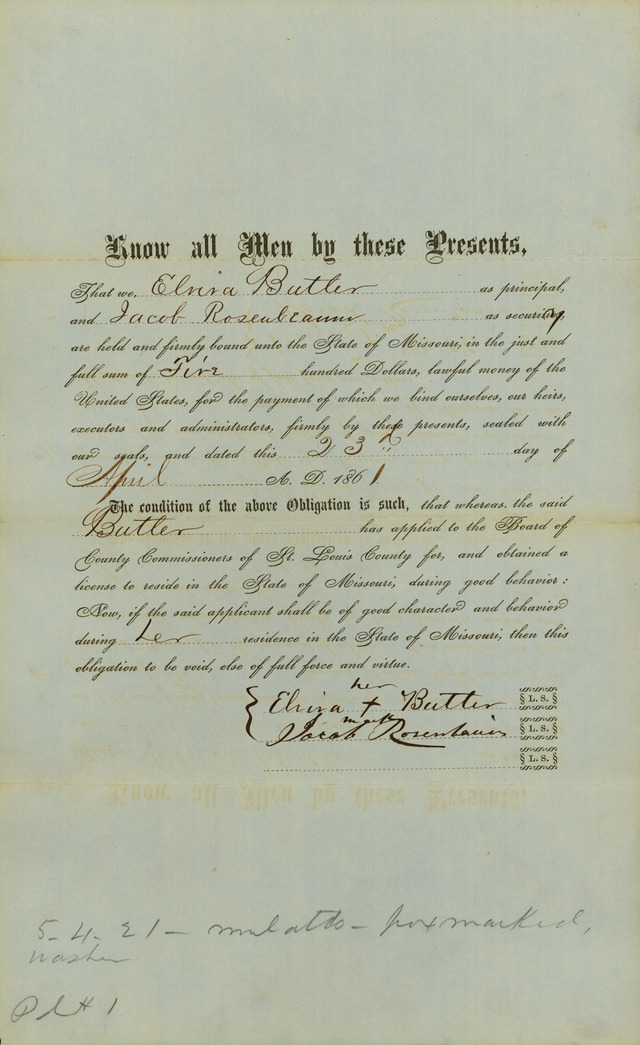 Know all Men by these Presents,
That we, Elvira Butler as principal,
and Jacob Rosenbaum as security,
are held and firmly bound unto the State of Missouri, in the just and
full sum of Five hundred Dollars, lawful money of the
United States, for the payment of which we bind ourselves, our heirs,
executors and administrators, firmly by these presents, sealed with
our seals, and dated this 23d day of
April A. D. 1861
The condition of the above Obligation is such, that whereas, the said
Butler has applied to the Board of
County Commissioners of St. Louis County for, and obtained a
license to reside in the State of Missouri, during good behavior:
Now, if the said applicant shall be of good character and behavior
during her residence in the State of Missouri, then this
obligation to be void, else of full force and virtue.
her
Elvira + Butler L. S.
mark
Jacob Rosenbaum L. S.
L. S.
5-4-21- mulatto- poxmarked,
washer